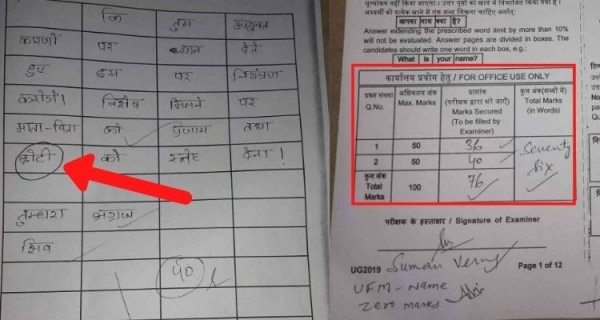 कि तुम उपयुक्त
कारणों पर ध्यान देते
हुए इस पर नियंत्रण
करोगे। विशेष मिलने पर
माता-पिता को प्रणाम तथा
छोटी को स्नेह देना!
तुम्हारा अग्रज
शिव
40
मूल्यांकन नहीं किया जाएगा।
आपका नाम क्या है?
Answer extending the prescribed word limit by more than 10%
will not be evaluated. Answer pages are divided in boxes. The
candidates should write one word in each box, e.g.:
What is your name?
कार्यालय प्रयोग हेतु / FOR OFFICE USE ONLY
प्रश्न संख्या Q.No. अधिकतम अंक Max. Marks प्राप्तांक (परीक्षक द्वारा भरे जाएँ) Marks Secured (To be filled by Examiner) कुल अंक (शब्दों में) Total Marks (in Words)
1 50 36 Seventy
2 50 40 Six
कुल अंक Total Marks 100 76
परीक्षक के हस्ताक्षर / Signature of Examiner
UG2019 Suman Verma Page 1 of 12
UFM-Name
Zero marks